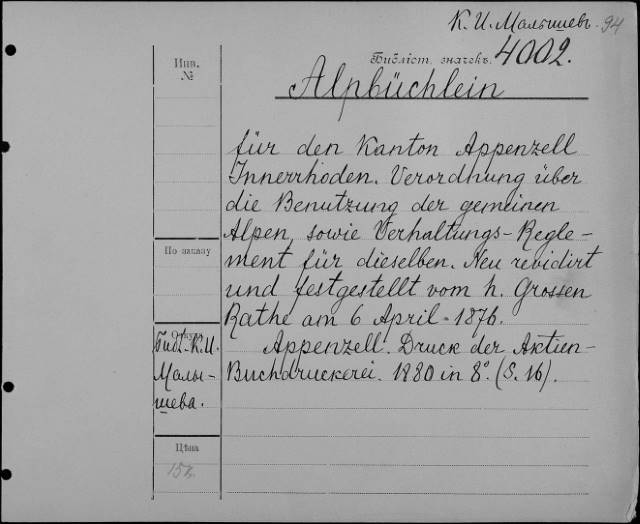 К. И. Малышевъ. 94
Библіот. значекъ. 4002.
Инв.
№
Alpbüchlein
für den Kanton Appenzell
Innerrhoden. Verordnung über
die Benutzung der gemeinen
Alpen, sowie Verhaltungs-Regle-
ment für dieselben. Neu revidirt
und festgestellt vom h. Grossen
Rathe am 6 April 1876.
Appenzell. Druck der Aktien-
Buchdruckerei. 1880 in 8º. (S. 16).
По заказу
Откуда
Библ. К. И.
Малы-
шева.
Цѣна
15к.